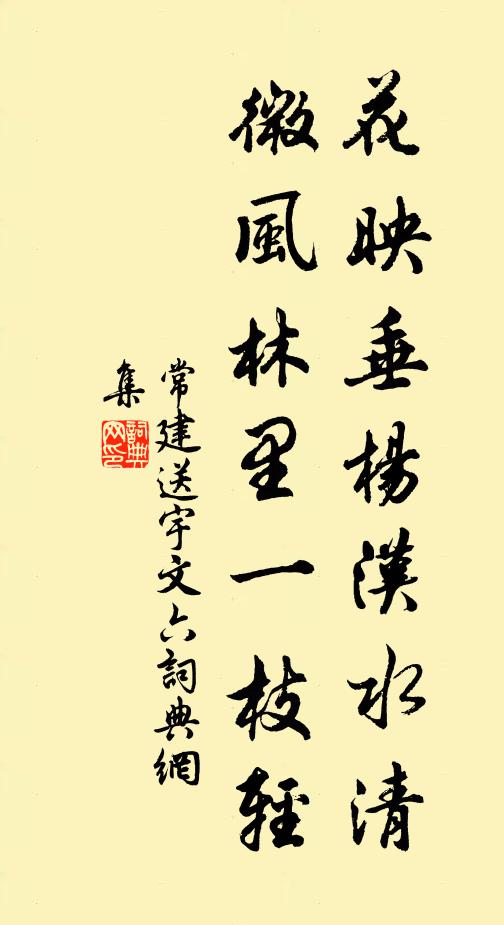 花映垂楊漢水清
微風林里一枝輕
常建送宇文六詞典網
集
詞典网印